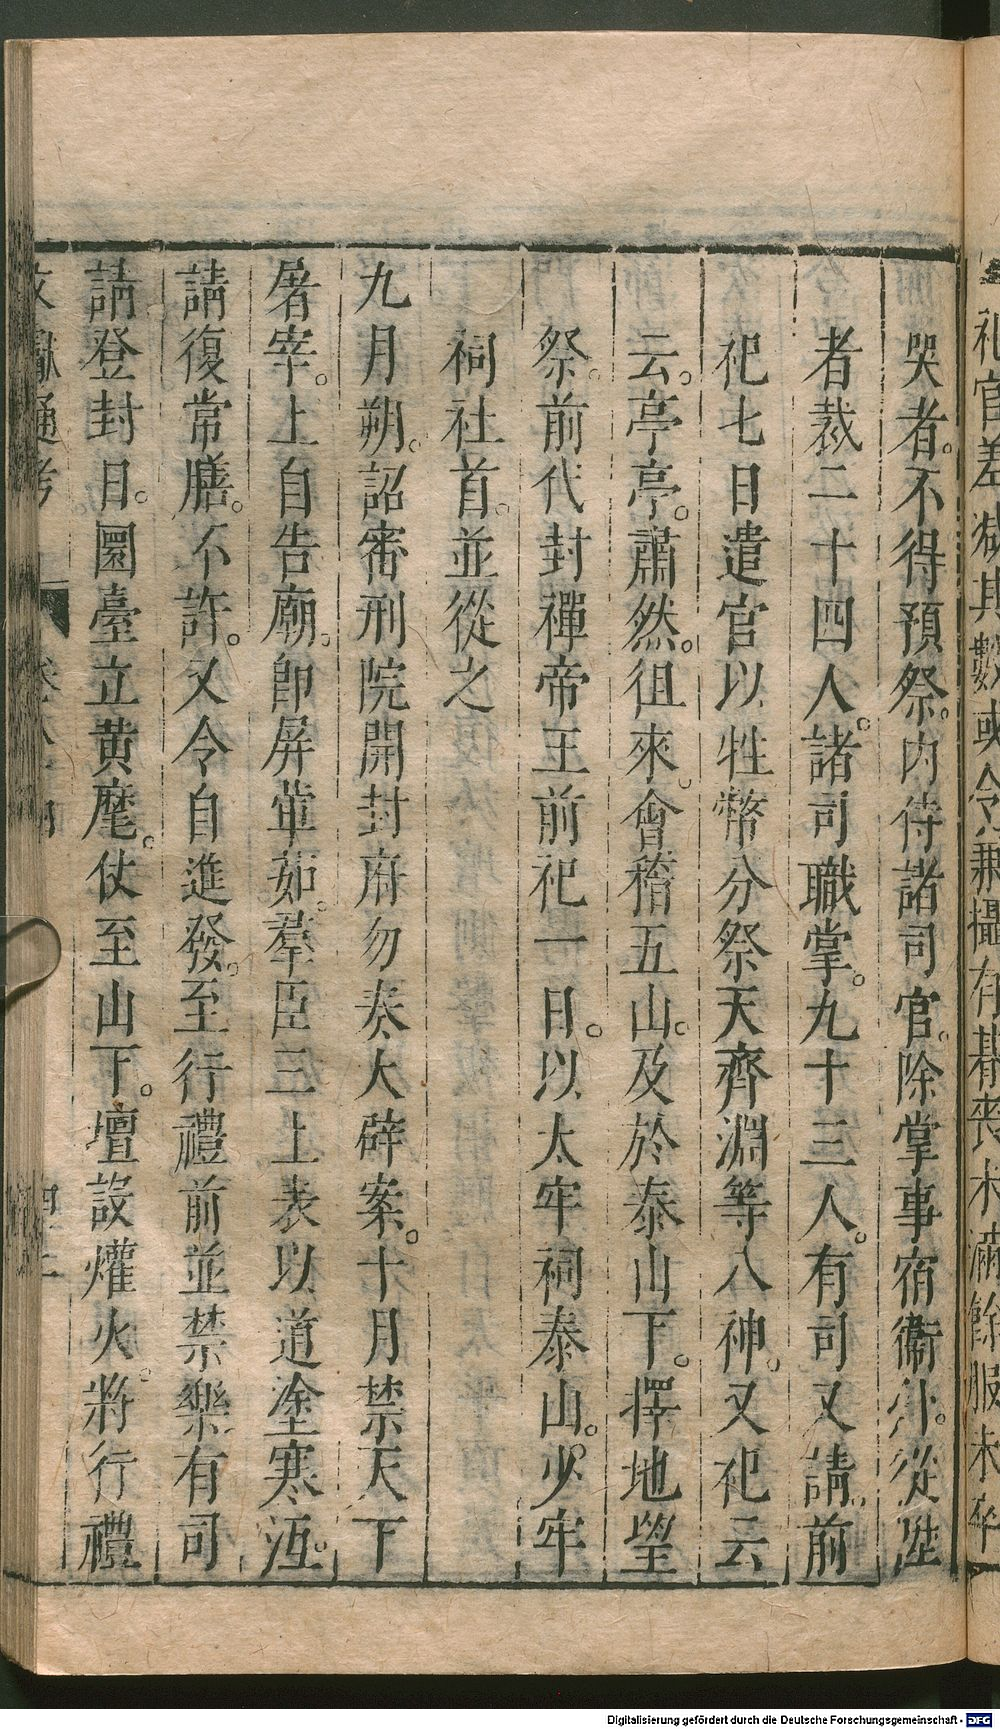 祀官差攝其數或令兼攝有朞喪未滿餘服未卒
哭者。不得預祭。內侍諸司官。除掌事宿衞外。從陞
者裁二十四人。諸司職掌。九十三人。有司又請前
祀七日遣官以牲幣分祭天齊淵等八神。又祀云
云。亭亭。肅然。徂來。會稽五山。及於泰山下。擇地望
祭。前代封禪帝王前祀一日。以太牢祠泰山。少牢
祠社首。並從之
九月朔。詔審刑院開封府勿奏大辟案。十月禁天下
屠宰。上自告廟。卽屏葷茹。羣臣三上表以道塗寒沍。
請復常膳。不許。又令自進發。至行禮前並禁樂有司
請登封日。圜臺立黃麾。仗至山下。壇設爟火。將行禮
文獻通考
Digitalisierung gefördert durch die Deutsche Forschungsgemeinschaft - DFG